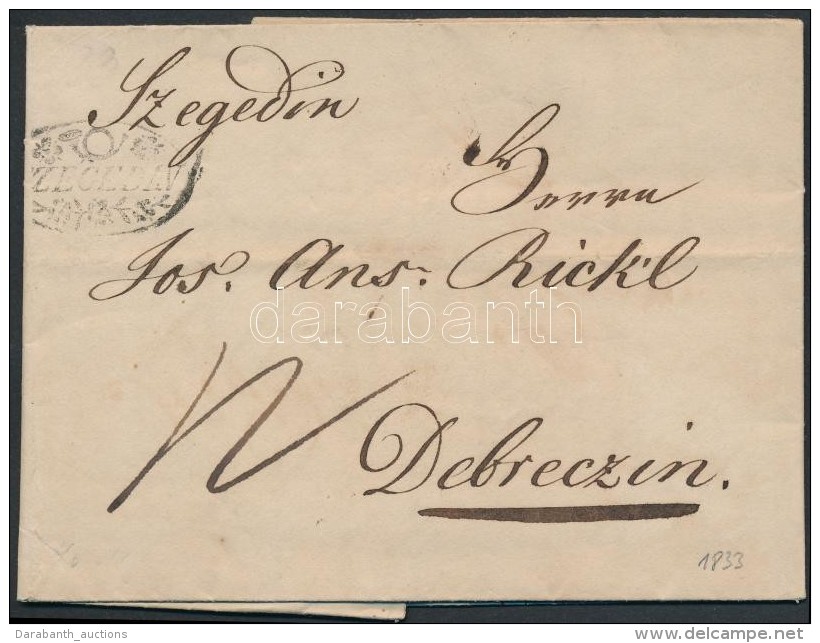 Szegedin
SZEGEDIN
Herrn
Jos. Ans. Rickl
darabanth
Debreczin.
1833
Darabanth_auctions
www.delcampe.net